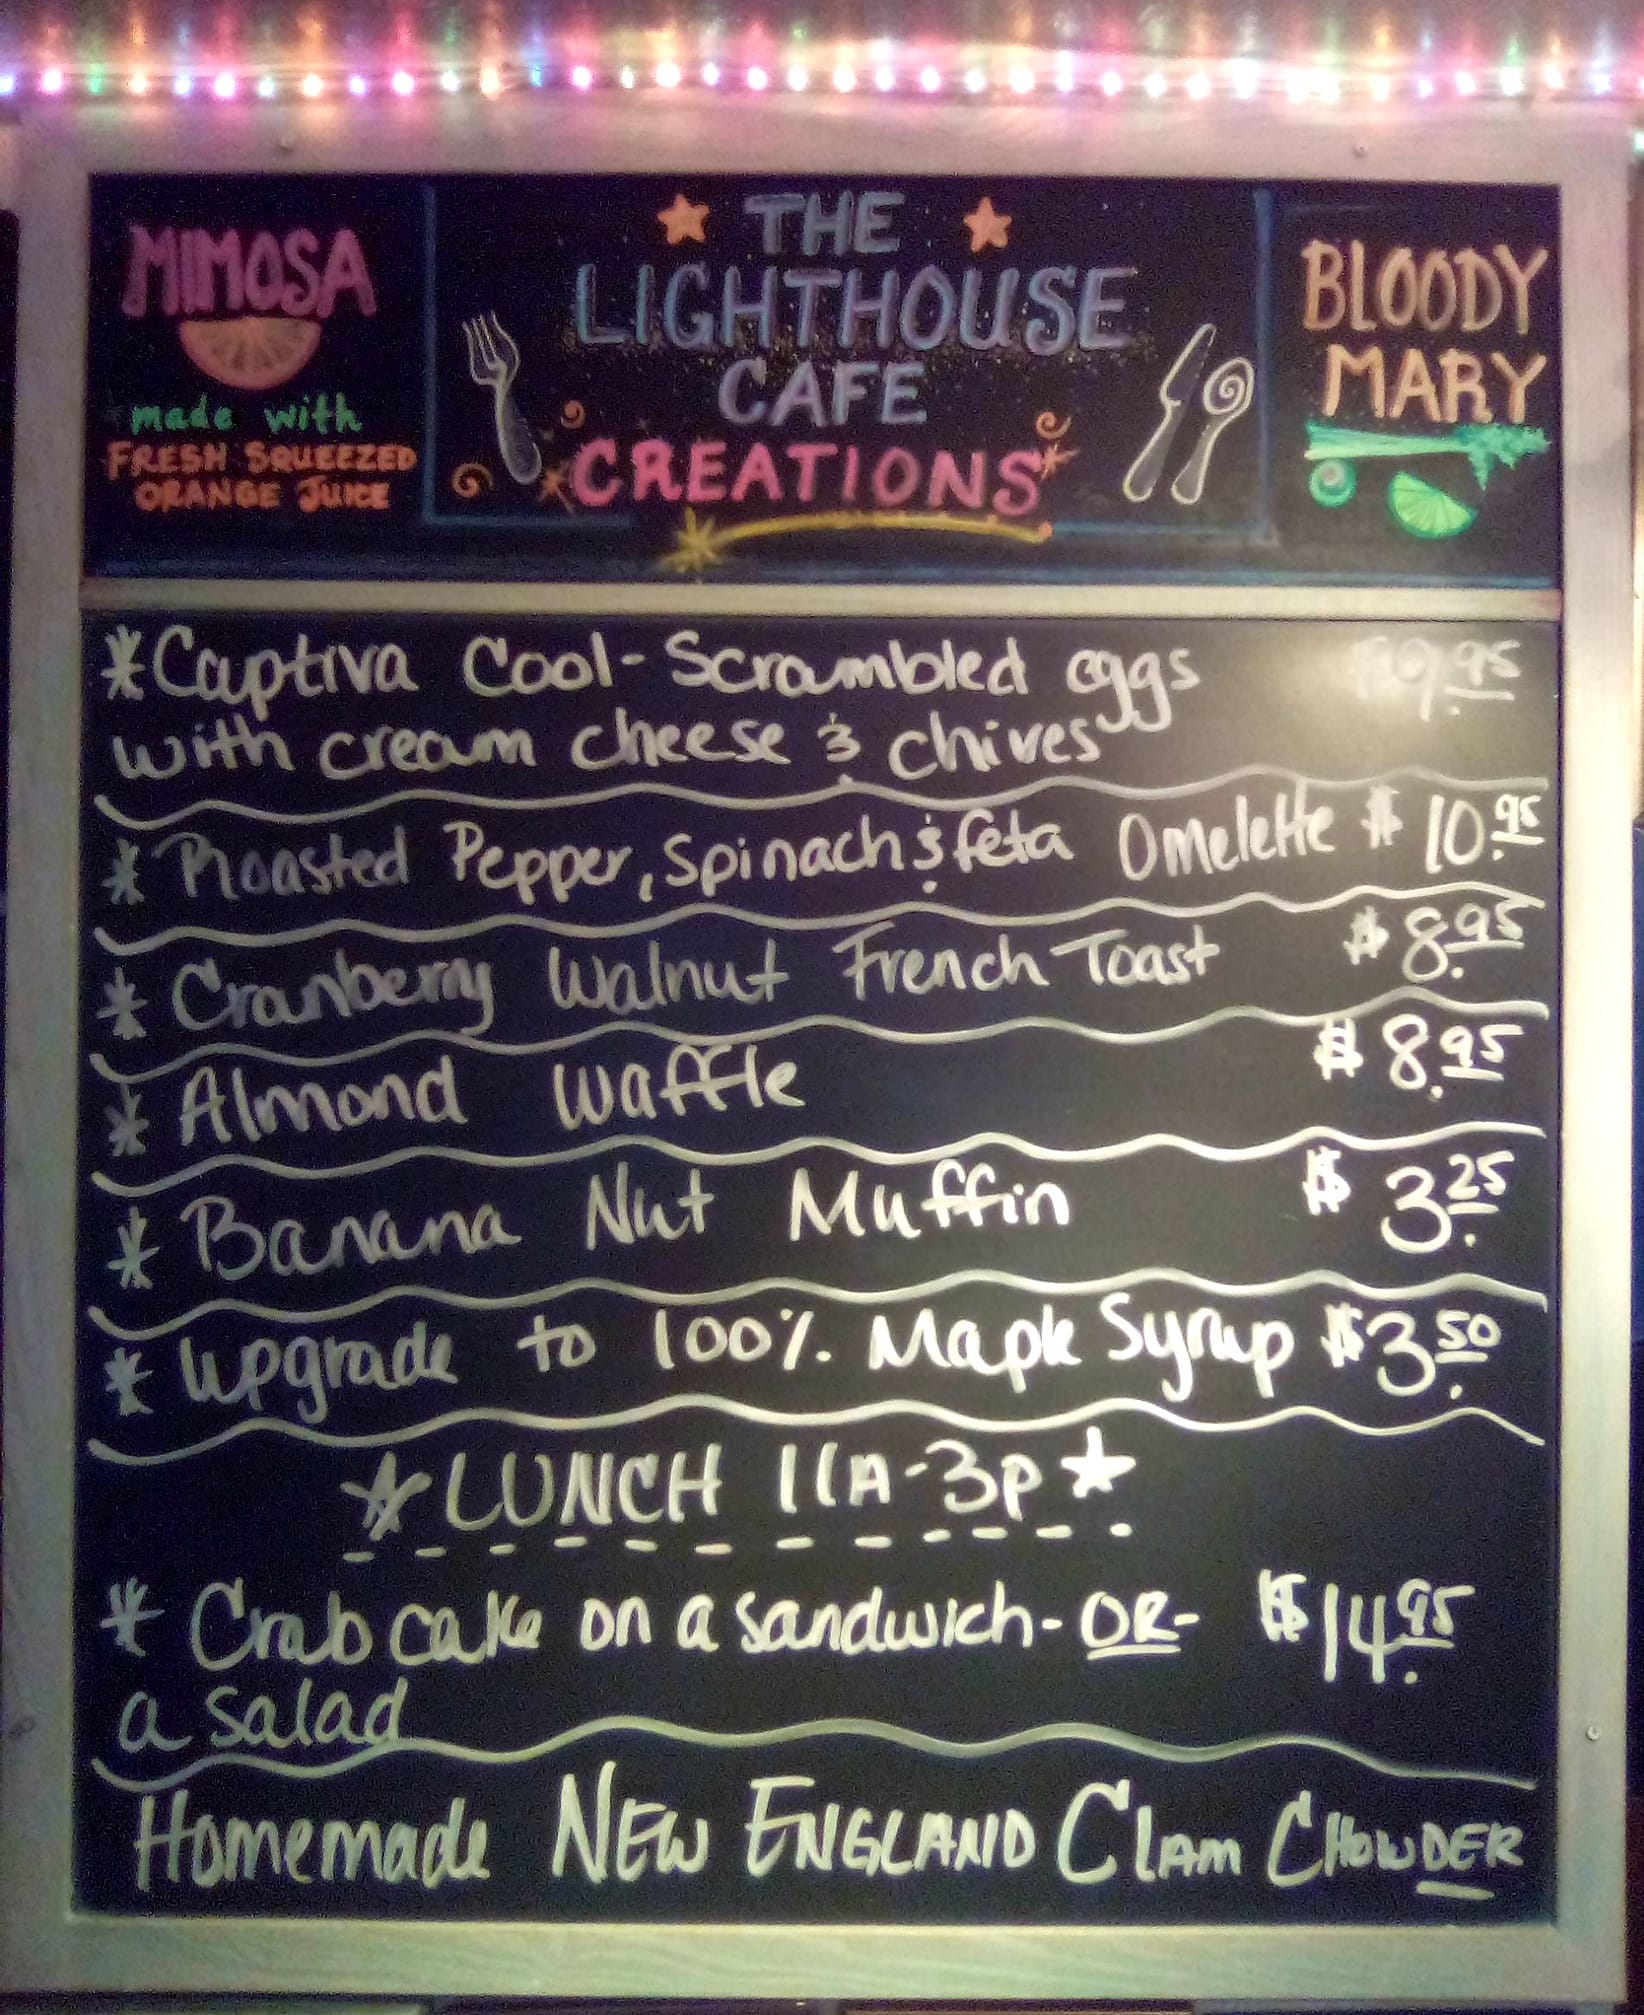 MIMOSA
made with
FRESH SQUEEZED
ORANGE JUICE
THE
LIGHTHOUSE
CAFE
CREATIONS
BLOODY
MARY
*Captiva Cool-Scrambled eggs $9.95
with cream cheese & chives
* Roasted Pepper, Spinach & feta Omelette $10.95
* Cranberry Walnut French Toast $8.95
* Almond Waffle $8.95
* Banana Nut Muffin $3.25
* Upgrade to 100% Maple Syrup $3.50
LUNCH 11A-3P
* Crab cake on a sandwich-OR- $14.95
a salad
Homemade NEW ENGLAND CLAM CHOWDER